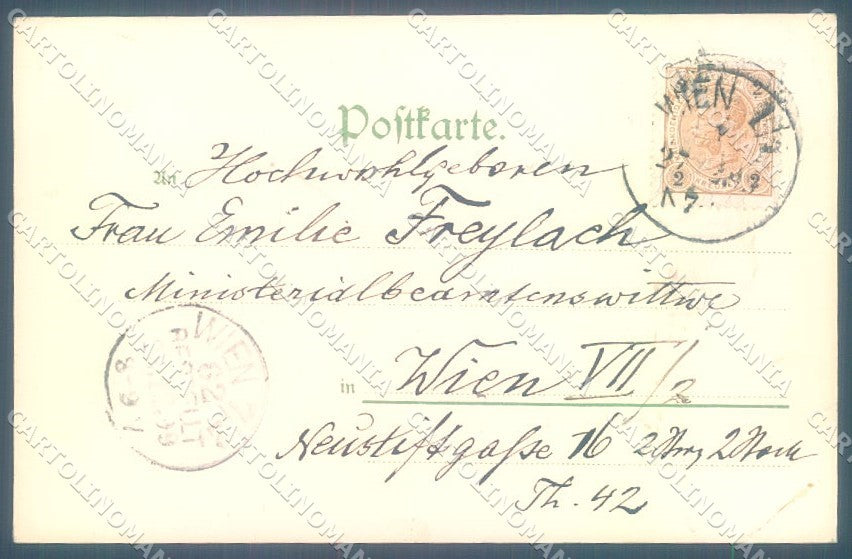 Postkarte.
An Hochwohlgeboren
Frau Emilie Freylach
Ministerialbeamtenswittwe
in Wien VII/2
Neustiftgaße 16 2 Stock
Th. 42
WIEN
WIEN
CARTOLINOMANIA